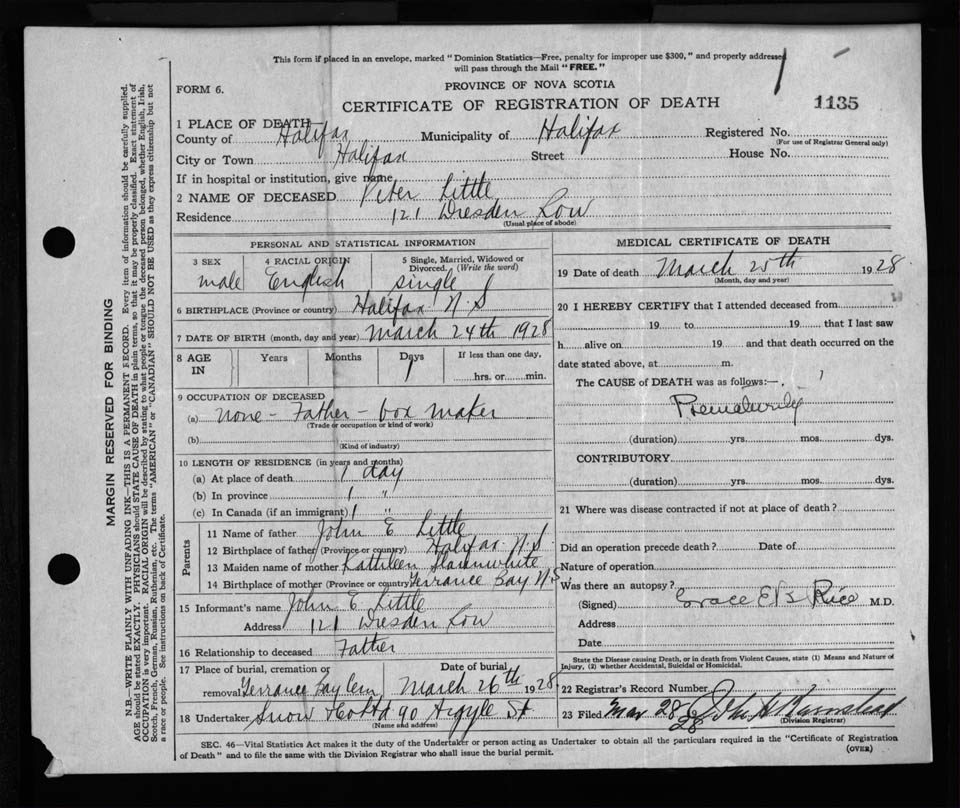 This form if placed in an envelope, marked "Dominion Statistics—Free, penalty for improper use $300," and properly addressed
will pass through the Mail "FREE."
FORM 6.
PROVINCE OF NOVA SCOTIA
CERTIFICATE OF REGISTRATION OF DEATH
1135
1 PLACE OF DEATH
County of Halifax Municipality of Halifax Registered No.
(For use of Registrar General only)
City or Town Halifax Street House No.
If in hospital or institution, give name
2 NAME OF DECEASED Peter Little
Residence 121 Dresden Row
(Usual place of abode)
PERSONAL AND STATISTICAL INFORMATION
3 SEX 4 RACIAL ORIGIN 5 Single, Married, Widowed or Divorced. (Write the word)
male English single
6 BIRTHPLACE (Province or country) Halifax N.S
7 DATE OF BIRTH (month, day and year) March 24th 1928
8 AGE IN Years Months Days If less than one day,
1 hrs. or min.
9 OCCUPATION OF DECEASED
(a) none - Father - box maker
(Trade or occupation or kind of work)
(b)
(Kind of industry)
10 LENGTH OF RESIDENCE (in years and months)
(a) At place of death 1 day
(b) In province 1 "
(c) In Canada (if an immigrant) 1 "
Parents
11 Name of father John E Little
12 Birthplace of father (Province or country) Halifax N.S.
13 Maiden name of mother Kathleen Slaunwhite
14 Birthplace of mother (Province or country) Terrance Bay N S
15 Informant's name John E Little
Address 121 Dresden Row
16 Relationship to deceased Father
17 Place of burial, cremation or removal Terrance Bay Cem Date of burial March 26th 1928
18 Undertaker Snow 90 Argyle St
(Name and address)
MEDICAL CERTIFICATE OF DEATH
19 Date of death March 25th 1928
(Month, day and year)
20 I HEREBY CERTIFY that I attended deceased from
19 to 19 that I last saw
h alive on 19 and that death occurred on the
date stated above, at m.
The CAUSE of DEATH was as follows:—
Prematurity
(duration) yrs. mos. dys.
CONTRIBUTORY
(duration) yrs. mos. dys.
21 Where was disease contracted if not at place of death?
Did an operation precede death? Date of
Nature of operation
Was there an autopsy?
(Signed) Grace E B Rice M.D.
Address
Date
State the Disease causing Death, or in death from Violent Causes, state (1) Means and Nature of
Injury, (2) whether Accidental, Suicidal or Homicidal.
22 Registrar's Record Number
23 Filed Mar 28 28
(Division Registrar)
SEC. 46—Vital Statistics Act makes it the duty of the Undertaker or person acting as Undertaker to obtain all the particulars required in the "Certificate of Registration
of Death" and to file the same with the Division Registrar who shall issue the burial permit.
(OVER)
MARGIN RESERVED FOR BINDING
N.B.—WRITE PLAINLY WITH UNFADING INK—THIS IS A PERMANENT RECORD. Every item of information should be carefully supplied.
AGE should be stated EXACTLY. PHYSICIANS should STATE CAUSE OF DEATH in plain terms, so that it may be properly classified. Exact statement of
OCCUPATION is very important. RACIAL ORIGIN will be described by stating to what people or tongue the deceased person belonged, whether English, Irish,
Scotch, French, German, Russian, Ruthenian, etc. The terms "AMERICAN" or "CANADIAN" SHOULD NOT BE USED as they express citizenship but not
a race or people. See instructions on back of Certificate.